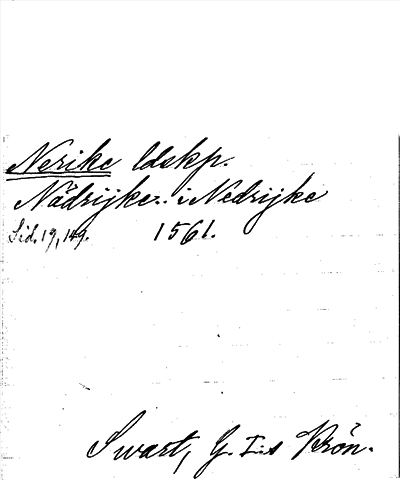 Nerike ldskp.
Nädrijke.. i Nedrijke
Sid. 19, 149. 1561.
Swart, G. I:s Krön.